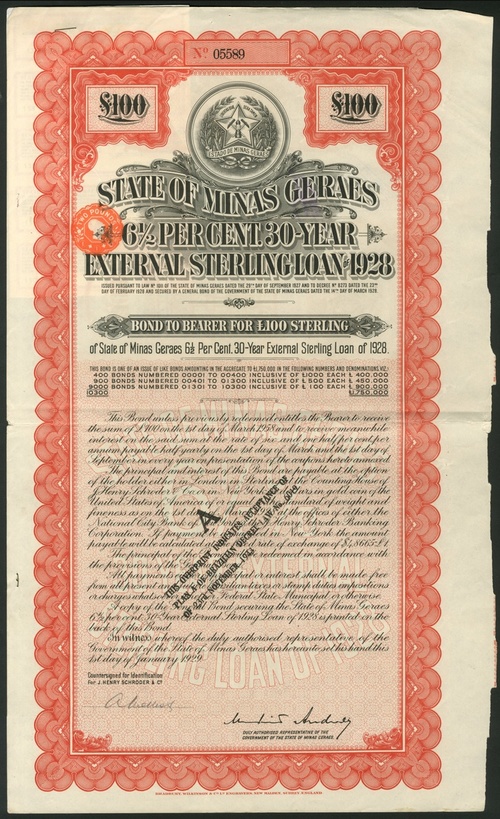 Nº 05589
£100 £100
ESTADO DE MINAS GERAES
STATE OF MINAS GERAES
TWO POUNDS
6½ PER CENT. 30-YEAR
EXTERNAL STERLING LOAN OF 1928
ISSUED PURSUANT TO LAW Nº 1011 OF THE STATE OF MINAS GERAES DATED THE 29TH DAY OF SEPTEMBER 1927 AND TO DECREE Nº 8273 DATED THE 23RD
DAY OF FEBRUARY 1928 AND SECURED BY A GENERAL BOND OF THE GOVERNMENT OF THE STATE OF MINAS GERAES DATED THE 14TH DAY OF MARCH 1928.
BOND TO BEARER FOR £100 STERLING
of State of Minas Geraes 6½ Per Cent. 30-Year External Sterling Loan of 1928.
THIS BOND IS ONE OF AN ISSUE OF LIKE BONDS AMOUNTING IN THE AGGREGATE TO £1,750,000 IN THE FOLLOWING NUMBERS AND DENOMINATIONS VIZ:-
400 BONDS NUMBERED 00001 TO 00400 INCLUSIVE OF £1,000 EACH £ 400,000
900 BONDS NUMBERED 00401 TO 01300 INCLUSIVE OF £ 500 EACH £ 450,000
9000 BONDS NUMBERED 01301 TO 10300 INCLUSIVE OF £ 100 EACH £ 900,000
10300 £1,750,000
This Bond unless previously redeemed entitles the Bearer to receive
the sum of £100 on the 1st day of March 1958 and to receive meanwhile
interest on the said sum at the rate of six and one half per cent per
annum payable half yearly on the 1st day of March and the 1st day of
September in every year on presentation of the coupons hereto annexed
The principal and interest of this Bond are payable at the option
of the holder either in London in Sterling at the Counting House of
J. Henry Schröder & Co. or in New York in dollars in gold coin of the
United States of America of or equal to the standard of weight and
fineness as on the 1st day of March at the offices of either the
National City Bank of New York or J. Henry Schroder Banking
Corporation. If payment in New York the amount
payable will be calculated at the fixed rate of exchange of $4.8665=£1.
The principal of the redeemed in accordance with
the provisions of the
All payments of principal or interest shall be made free
from all present or future Brazilian taxes or stamp duties impositions
or charges whatsoever Federal State Municipal or otherwise.
A copy of the General Bond securing the State of Minas Geraes
6½ per cent 30 Year External Sterling Loan of 1928 is printed on the
back of this Bond.
In witness whereof the duly authorised representative of the
Government of the State of Minas Geraes has hereunto set his hand this
1st day of January 1929.
A
THIS OVERPRINT INDICATES ACCEPTANCE OF
PLAN A OF BRAZILIAN DECREE LAW Nº 6019
OF 23RD NOVEMBER, 1943.
Countersigned for Identification
For J. HENRY SCHRODER & Cº
DULY AUTHORISED REPRESENTATIVE OF THE
GOVERNMENT OF THE STATE OF MINAS GERAES.
BRADBURY, WILKINSON & Cº Lᵈ ENGRAVERS, NEW MALDEN, SURREY, ENGLAND.